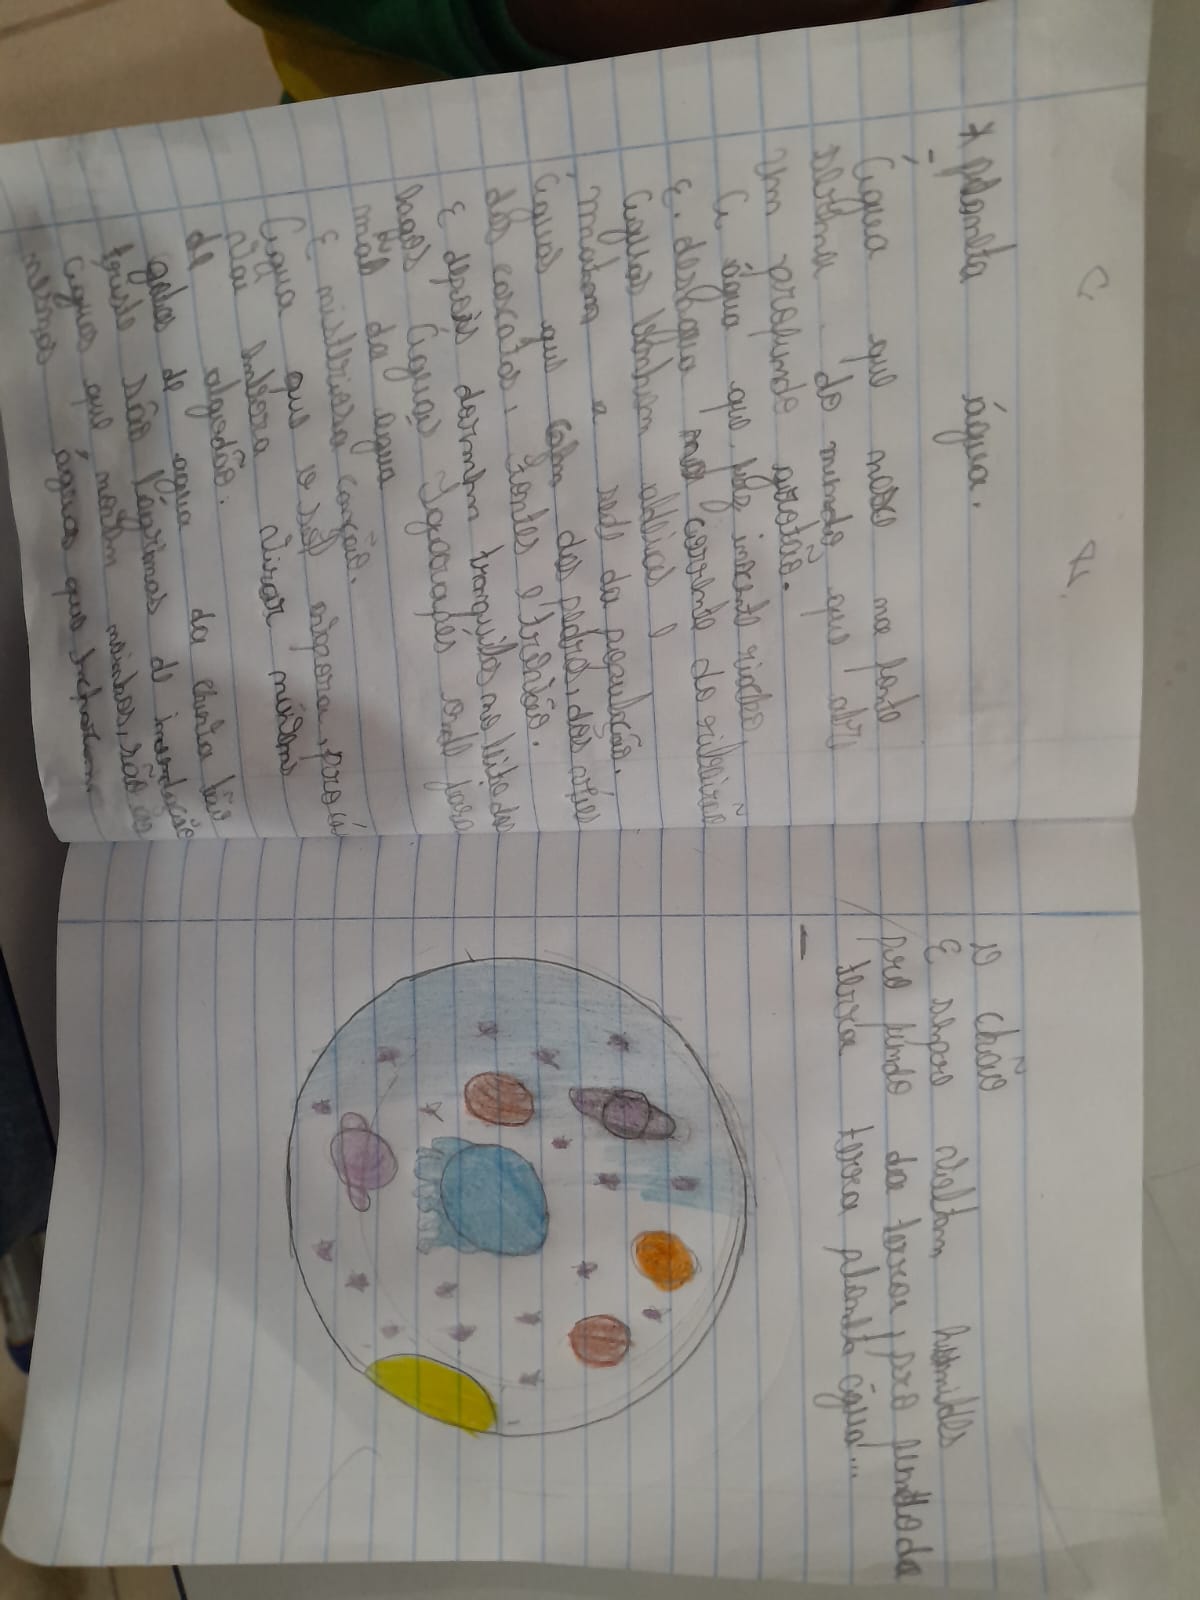 * planeta água.
Água que nasce na fonte
serena do mundo que abr
um profundo grotão.
Água que faz inocente riacho
E desagua na corrente do ribeirão
águas banham aldeias e
matam a sede da população.
Águas que caem das pedras, dos véus
das cascatas, fontes e trovão.
E depois dormem tranquilas no leito dos
lagos Águas Igarapés onde Iara
mãe da água
E misteriosa canção.
Água que o sol evapora, pro céu
Vai embora virar núvens
de algodão.
gotas de água da chuva tão
triste são lágrimas de inundação
Águas que movem moinhos, são as
mesmas águas que encharcam
o chão
E sempre voltam humildes
pro fundo da terra, pro fundo da
terra terra planeta água...